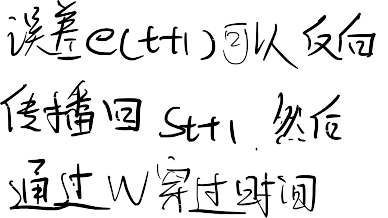 误差e(t+1)可以反向
传播回St+1.然后
通过W穿过时间